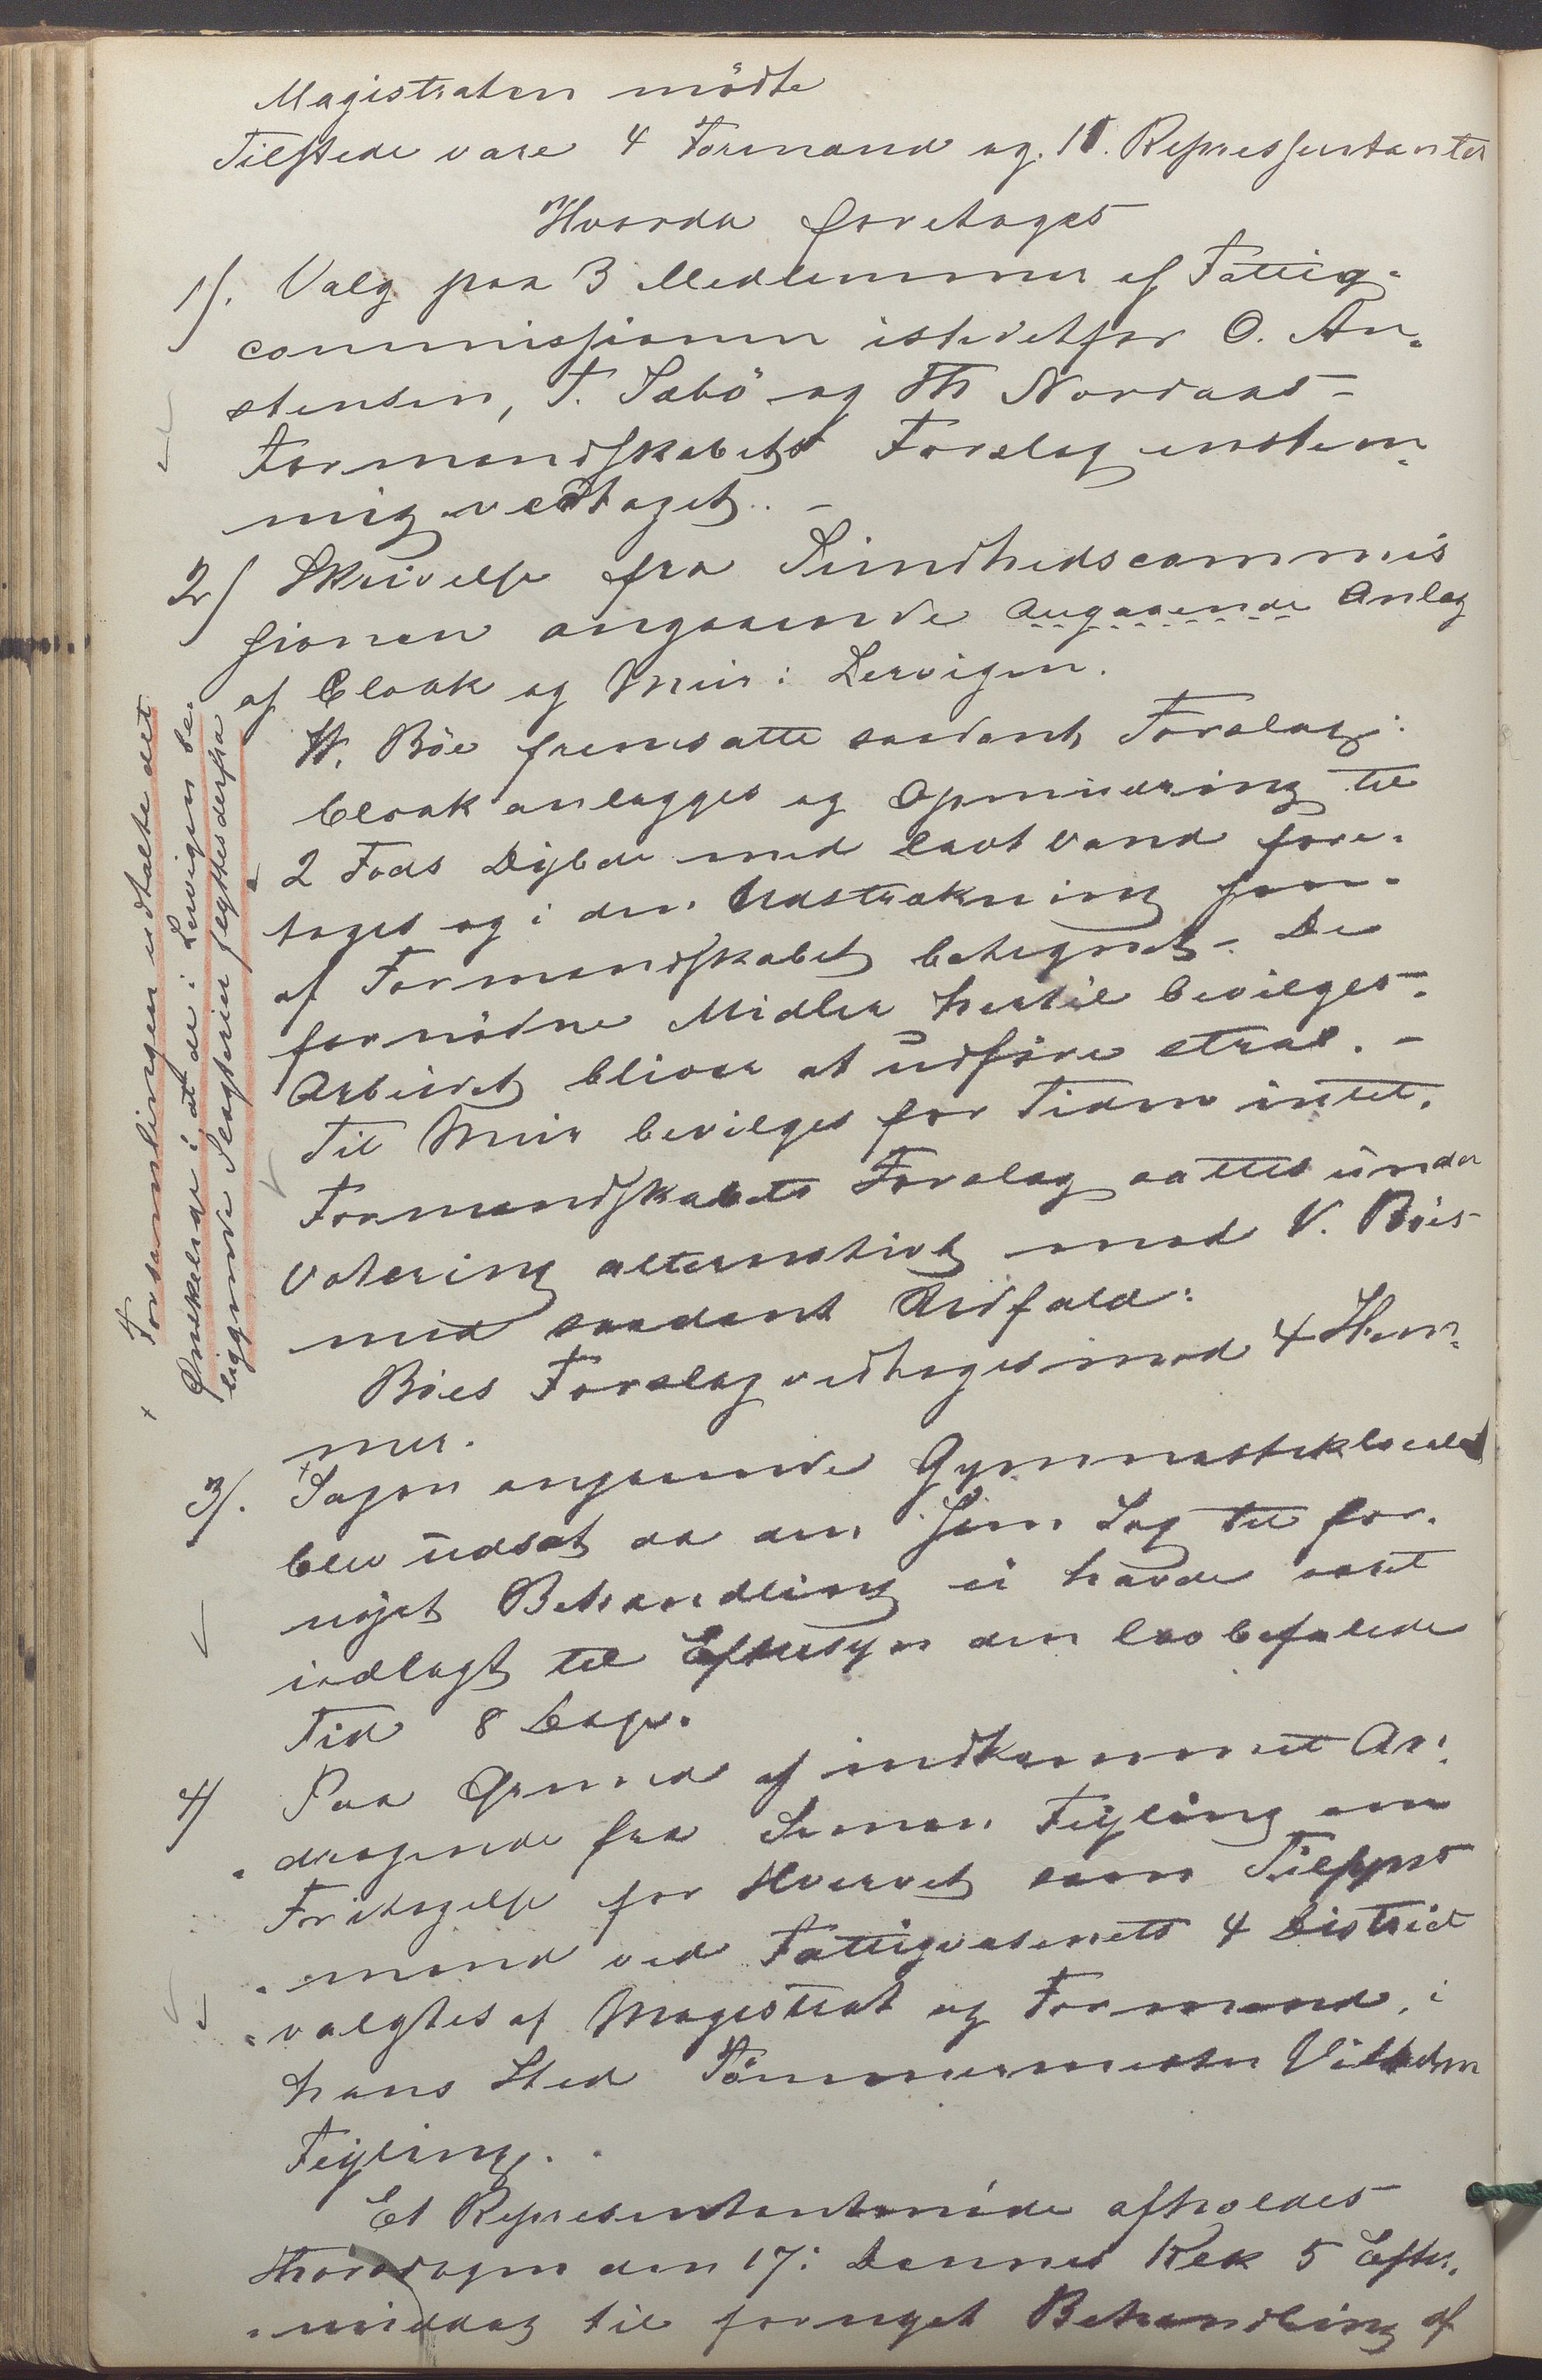 Magistraten mödte
Tilstede vare 4 Formænd og 11. Repræsentanter
Hvorda foretages
1). Valg paa 3 Medlemmer af Fattig-
commissionen istedetfor O. Au-
stensen, T. Sæbö og Th Nordaas -
Formandskabets Forslag enstem-
mig vedtaget. -
2) Skrivelse fra Sundhedscommis
sionen angaaende angaaende Anlæg
af Cloak og Muur i Lervigen.
W. Böe fremsatte saadant Forslag:
Cloak anlægges og Opmudring til
2 Fods Dybde med lavt Vand fore-
tages og i den Udstrækning som
af Formandskabet betegnet - De
fornödne Midler hertil bevilges.
Arbeidet bliver at udföre strax. -
Til Muur bevilges for Tiden intet.
Formandskabets Forslag sattes under
Votering alternativt med V. Böes
med saadant Udfald:
Böes Forslag vedtages mod 4 Stem-
mer. +
3). Sagen angaaende Gymnastiklocalet
blev udsat da den som Sag til for-
nyet Behandling ei havde været
indlagt til Eftersyn den lovbefalede
Tid 8 Dage.
4) Paa Grund af indkommet An-
dragende fra Simon Feyling om
Fritagelse for Hvervet som Tilsyns
mand ved Fattigvæsenets 4 District
valgtes af Magistrat og Formænd i
hans Sted Tömmermester Vilhelm
Feyling.
Et Representantmöde afholdes
Thorsdagen den 17: Dennes Klok 5 Efter-
middag til fornyet Behandling af
+ Forsamlingen udtalte det
Önskelige i at de i Lervigen be-
liggende Slagterier flyttes derfra